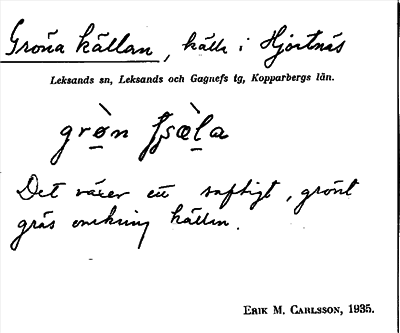 Gröna källan, källa i Hjortnäs
Leksands sn, Leksands och Gagnefs tg, Kopparbergs län.
grø̀n ʃsæ̀la
Det växer ett saftigt, grönt
gräs omkring källan.
ERIK M. CARLSSON, 1935.